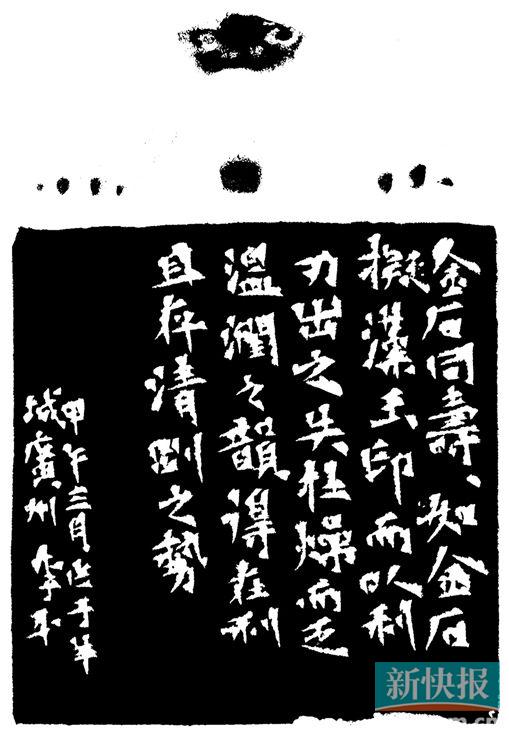 金石同壽、如金石
擬漢玉印而以利
刃出之失在燥而乏
溫潤之韻得在利
且存清剛之勢
甲午三月作于羊
城廣州 李
新快报